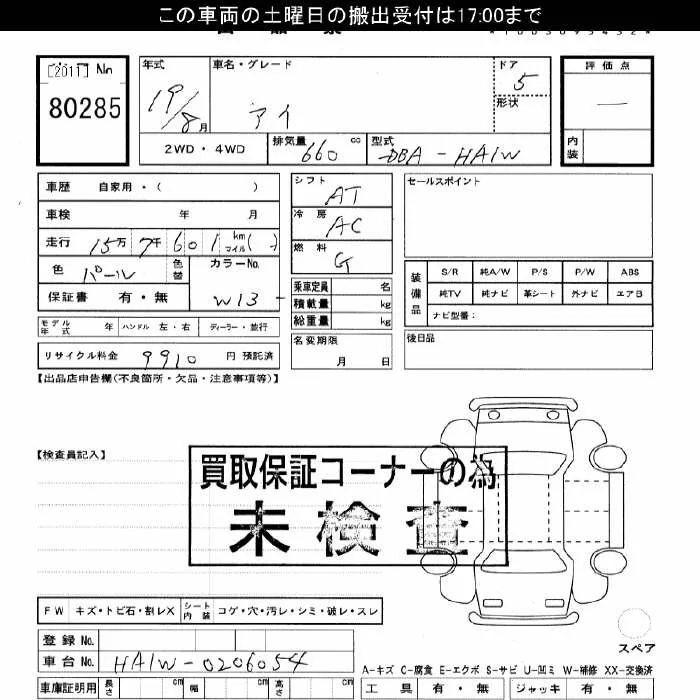 この車両の土曜日の搬出受付は17:00まで
*1003093432*
[2011] No
80285
年式 車名・グレード ドア 評価点
19/8月 アイ 5 —
形状
2WD・4WD 排気量 660 cc 型式 DBA-HA1W 内装
車歴 自家用・( )
車検 年 月
走行 15万7千601 km マイル( )
色 パール 色替 カラーNo. W13
保証書 有・無
モデル年式 年 ハンドル 左・右 ディーラー・並行
リサイクル料金 9910 円 預託済
シフト AT
冷房 AC
燃料 G
乗車定員 名
積載量 kg
総重量 kg
名変期限 月 日
セールスポイント
装備品 S/R 純A/W P/S P/W ABS
純TV 純ナビ 革シート 外ナビ エアB
ナビ型番:
後日品
【出品店申告欄(不良箇所・欠品・注意事項等)】
【検査員記入】
買取保証コーナーの為
未検査
FW キズ・トビ石・割レX シート内装 コゲ・穴・汚レ・シミ・破レ・スレ
登録No.
車台No. HA1W-0206054
スペア
A-キズ C-腐食 E-エクボ S-サビ U-凹ミ W-補修 XX-交換済
車庫証明用 長さ cm 幅 cm 高さ cm 工具 有・無 ジャッキ 有・無